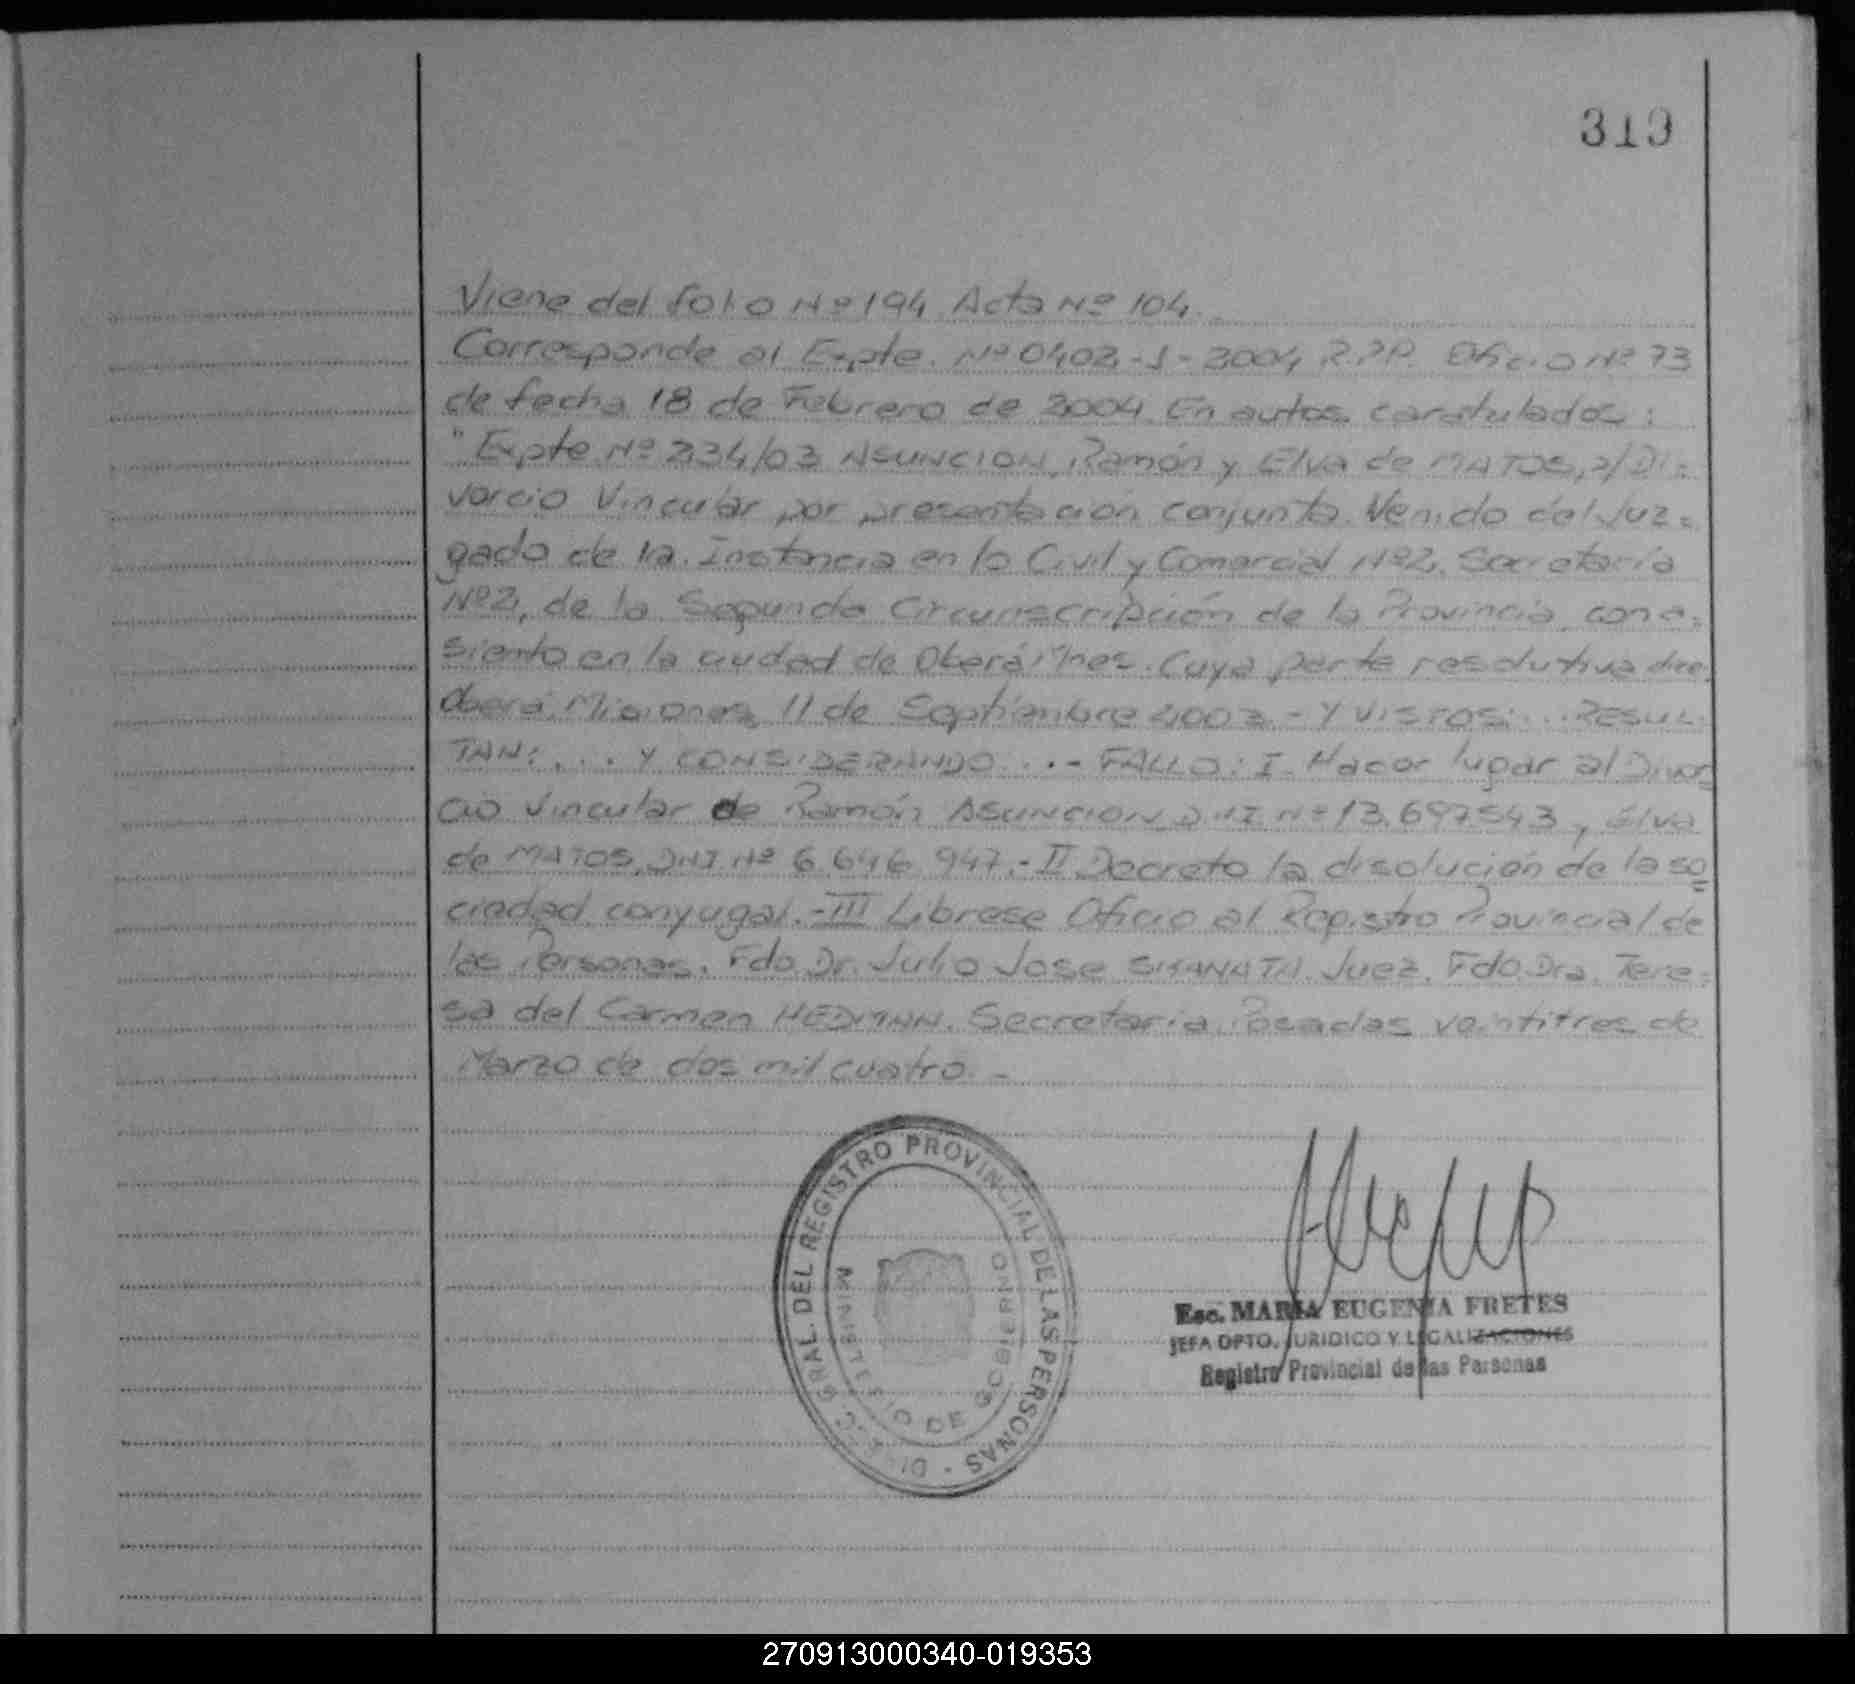 319
Viene del folio Nº 194 Acta Nº 104.
Corresponde al Expte. Nº 0402-J-2004 R.P.P. Oficio Nº 73
de fecha 18 de Febrero de 2004 En autos caratulados:
"Expte. Nº 234/03 ASUNCION, Ramón y Elva de MATOS, s/ Di=
vorcio Vincular por presentación conjunta. Venido del Juz=
gado de 1ra. Instancia en lo Civil y Comercial Nº 2, Secretaría
Nº 2, de la Segunda Circunscripción de la Provincia con a=
siento en la ciudad de Oberá, Mnes. Cuya parte resolutiva dice:
Oberá, Misiones, 11 de Septiembre 2003 - Y VISTOS:... RESUL-
TAN:... Y CONSIDERANDO ...- FALLO: I- Hacer lugar al Divor=
cio Vincular de Ramón ASUNCION D.N.I. Nº 13.697.543, Elva
de MATOS, DNI. Nº 6.646.947.- II Decreto la disolución de la so=
ciedad conyugal.- III Librese Oficio al Registro Provincial de
las Personas. Fdo. Dr. Julio Jose Juez. Fdo. Dra. Tere=
sa del Carmen HEDMAN. Secretaria. Posadas veintitres de
Marzo de dos mil cuatro. -
DIREC. GRAL. DEL REGISTRO PROVINCIAL DE LAS PERSONAS -
MINISTERIO DE GOBIERNO
Esc. MARIA EUGENIA FRETES
JEFA DPTO. JURIDICO Y LEGALIZACIONES
Registro Provincial de las Personas
270913000340-019353